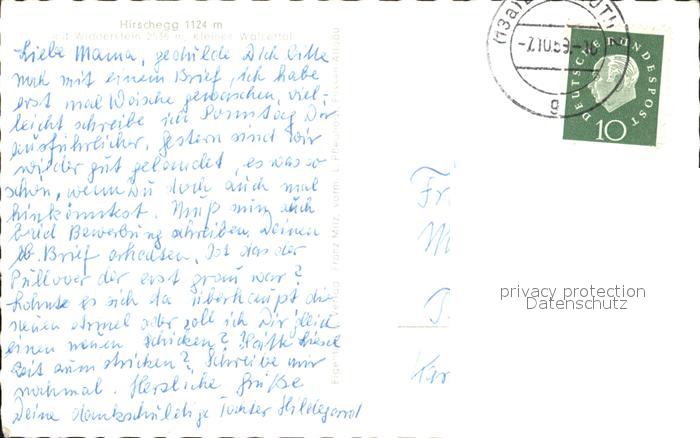 Hirschegg 1124 m
mit Widderstein 2536 m, Kleines Walsertal
Liebe Mama, gedulde Dich bitte
noch mit einem Brief, ich habe
erst mal Wäsche gewaschen, viel-
leicht schreibe ich Sonntag Dir
ausführlicher. Gestern sind wir
wieder gut gelandet, es was so
schön, wenn Du doch auch mal
hinkönntest. Muß nun auch
bald Bewerbung schreiben. Deinen
lb. Brief erhalten. Ist das der
Pullover der erst grau war?
Lohnte es sich da überhaupt die
neuen Ärmel oder soll ich Dir gleich
einen neuen schicken? Hätte diese
Zeit zum stricken? Schreibe mir
nochmal. Herzliche Grüße
Deine dankschuldige Tochter Hildegard
(13a)
-7.10.59-
g
DEUTSCHE BUNDESPOST
10
Fr
M
privacy protection
Datenschutz